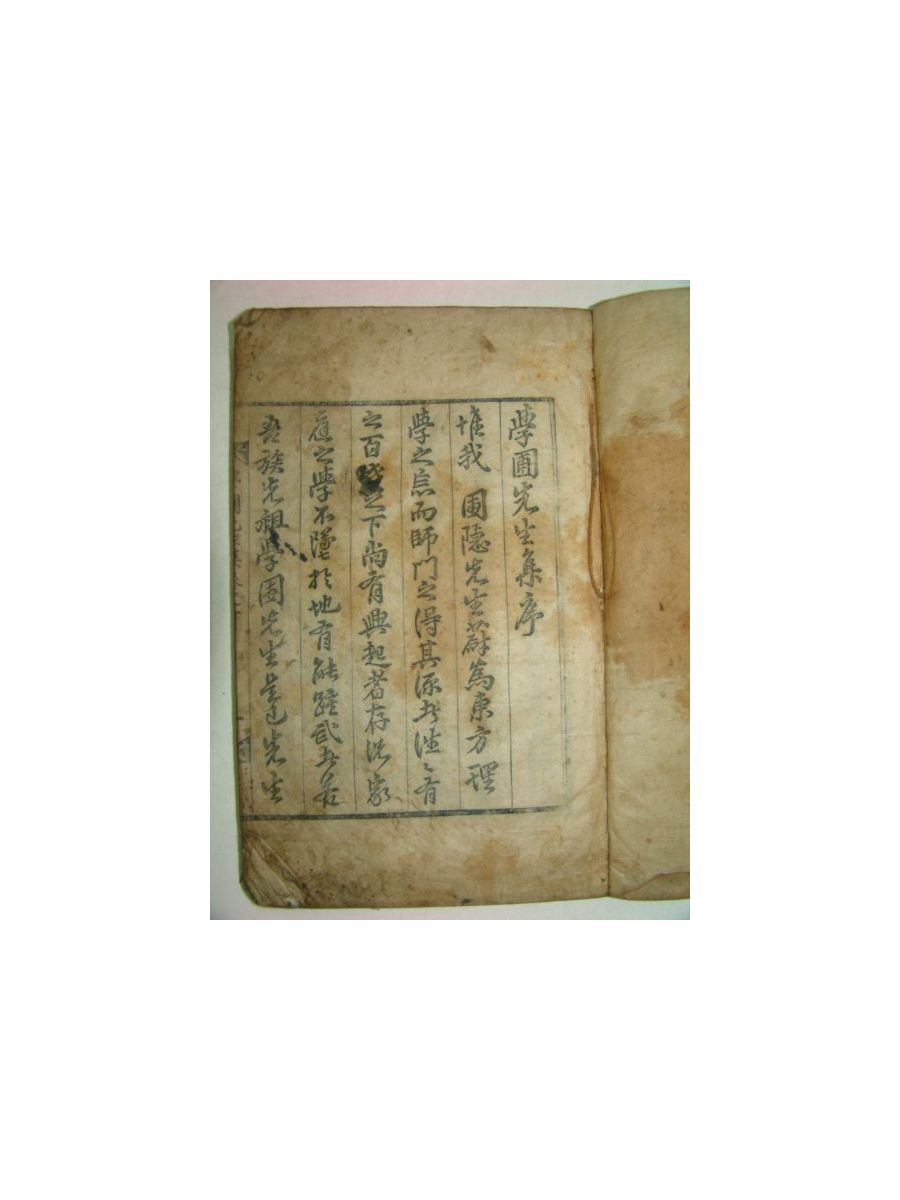 學圃先生集序
惟我 圃隱先生蔚爲東方理
學之宗而師門之得其源者往〻有
之百世之下尙有興起者存浩家
庭之學不墜於地有能踵武者若
吾族先祖學圃先生是已先生